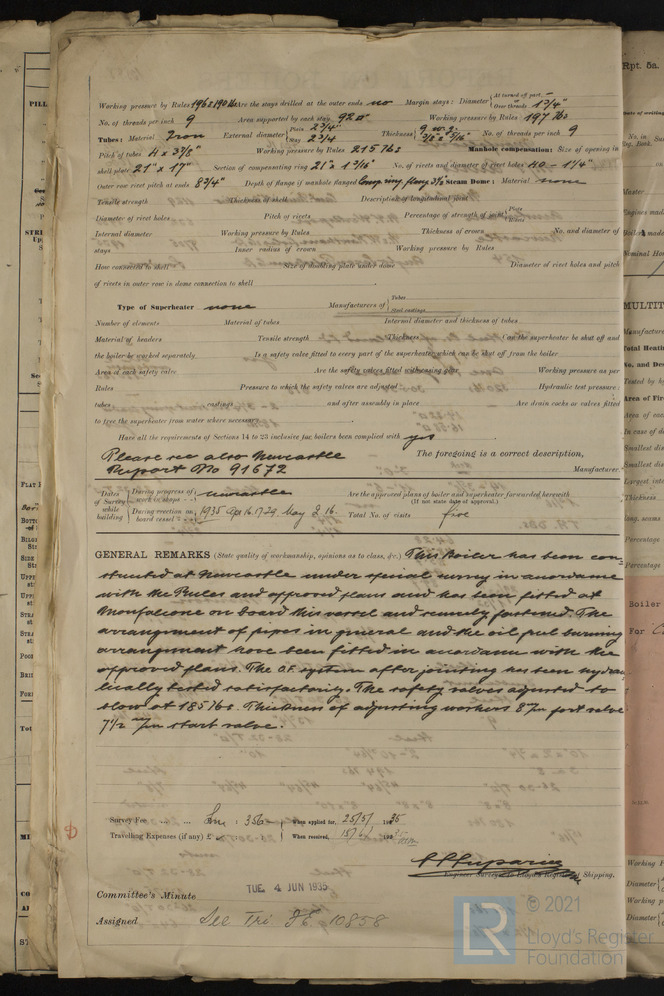 Working pressure by Rules 196 & 190 lbs Are the stays drilled at the outer ends no Margin stays: Diameter { At turned off part, or Over threads 1 3/4"
No. of threads per inch 9 Area supported by each stay 92 □" Working pressure by Rules 197 lbs
Tubes: Material Iron External diameter { Plain 2 3/4" Stay 2 3/4 Thickness { 9 w.g. 3/8" 5/16" No. of threads per inch 9
Pitch of tubes 4 x 3 7/8" Working pressure by Rules 215 lbs Manhole compensation: Size of opening in
shell plate 21" x 17" Section of compensating ring 21" x 1 3/16" No. of rivets and diameter of rivet holes 40 - 1 1/4"
Outer row rivet pitch at ends 8 3/4" Depth of flange if manhole flanged Comp ring flang 3 1/2" Steam Dome: Material none
Tensile strength Thickness of shell Description of longitudinal joint
Diameter of rivet holes Pitch of rivets Percentage of strength of joint { Plate Rivets
Internal diameter Working pressure by Rules Thickness of crown No. and diameter of
stays Inner radius of crown Working pressure by Rules
How connected to shell Size of doubling plate under dome Diameter of rivet holes and pitch
of rivets in outer row in dome connection to shell
Type of Superheater none Manufacturers of { Tubes Steel castings
Number of elements Material of tubes Internal diameter and thickness of tubes
Material of headers Tensile strength Thickness Can the superheater be shut off and
the boiler be worked separately Is a safety valve fitted to every part of the superheater which can be shut off from the boiler
Area of each safety valve Are the safety valves fitted with easing gear Working pressure as per
Rules Pressure to which the safety valves are adjusted Hydraulic test pressure:
tubes castings and after assembly in place Are drain cocks or valves fitted
to free the superheater from water where necessary
Have all the requirements of Sections 14 to 23 inclusive for boilers been complied with yes
Please see also Newcastle The foregoing is a correct description,
Report No 91672 Manufacturer.
Dates of Survey while building { During progress of work in shops - - Newcastle Are the approved plans of boiler and superheater forwarded herewith
(If not state date of approval.)
During erection on board vessel - - - 1935 Apr 16.17.29 May 2.16. Total No. of visits five
GENERAL REMARKS (State quality of workmanship, opinions as to class, &c.) This Boiler has been con-
structed at Newcastle under special survey in accordance
with the Rules and approved plans and has been fitted at
Monfalcone on board this vessel and securely fastened. The
arrangement of pipes in general and the oil fuel burning
arrangement have been fitted in accordance with the
approved plans. The O.F. system after jointing has been hydrau-
lically tested satisfactorily. The safety valves adjusted to
blow at 185 lbs. Thickness of adjusting washers 8 m/m port valve
7 1/2 m/m start valve.
Survey Fee ... ... : 356 : When applied for, 25/5/1935
Travelling Expenses (if any) £ When received, 15/6/1935
Engineer Surveyor to Lloyd's Register of Shipping.
TUE. 4 JUN 1935
Committee's Minute
Assigned See Tri. F.E. 10858
LR © 2021
Lloyd's Register
Foundation
Rpt. 5a.
MULTIT